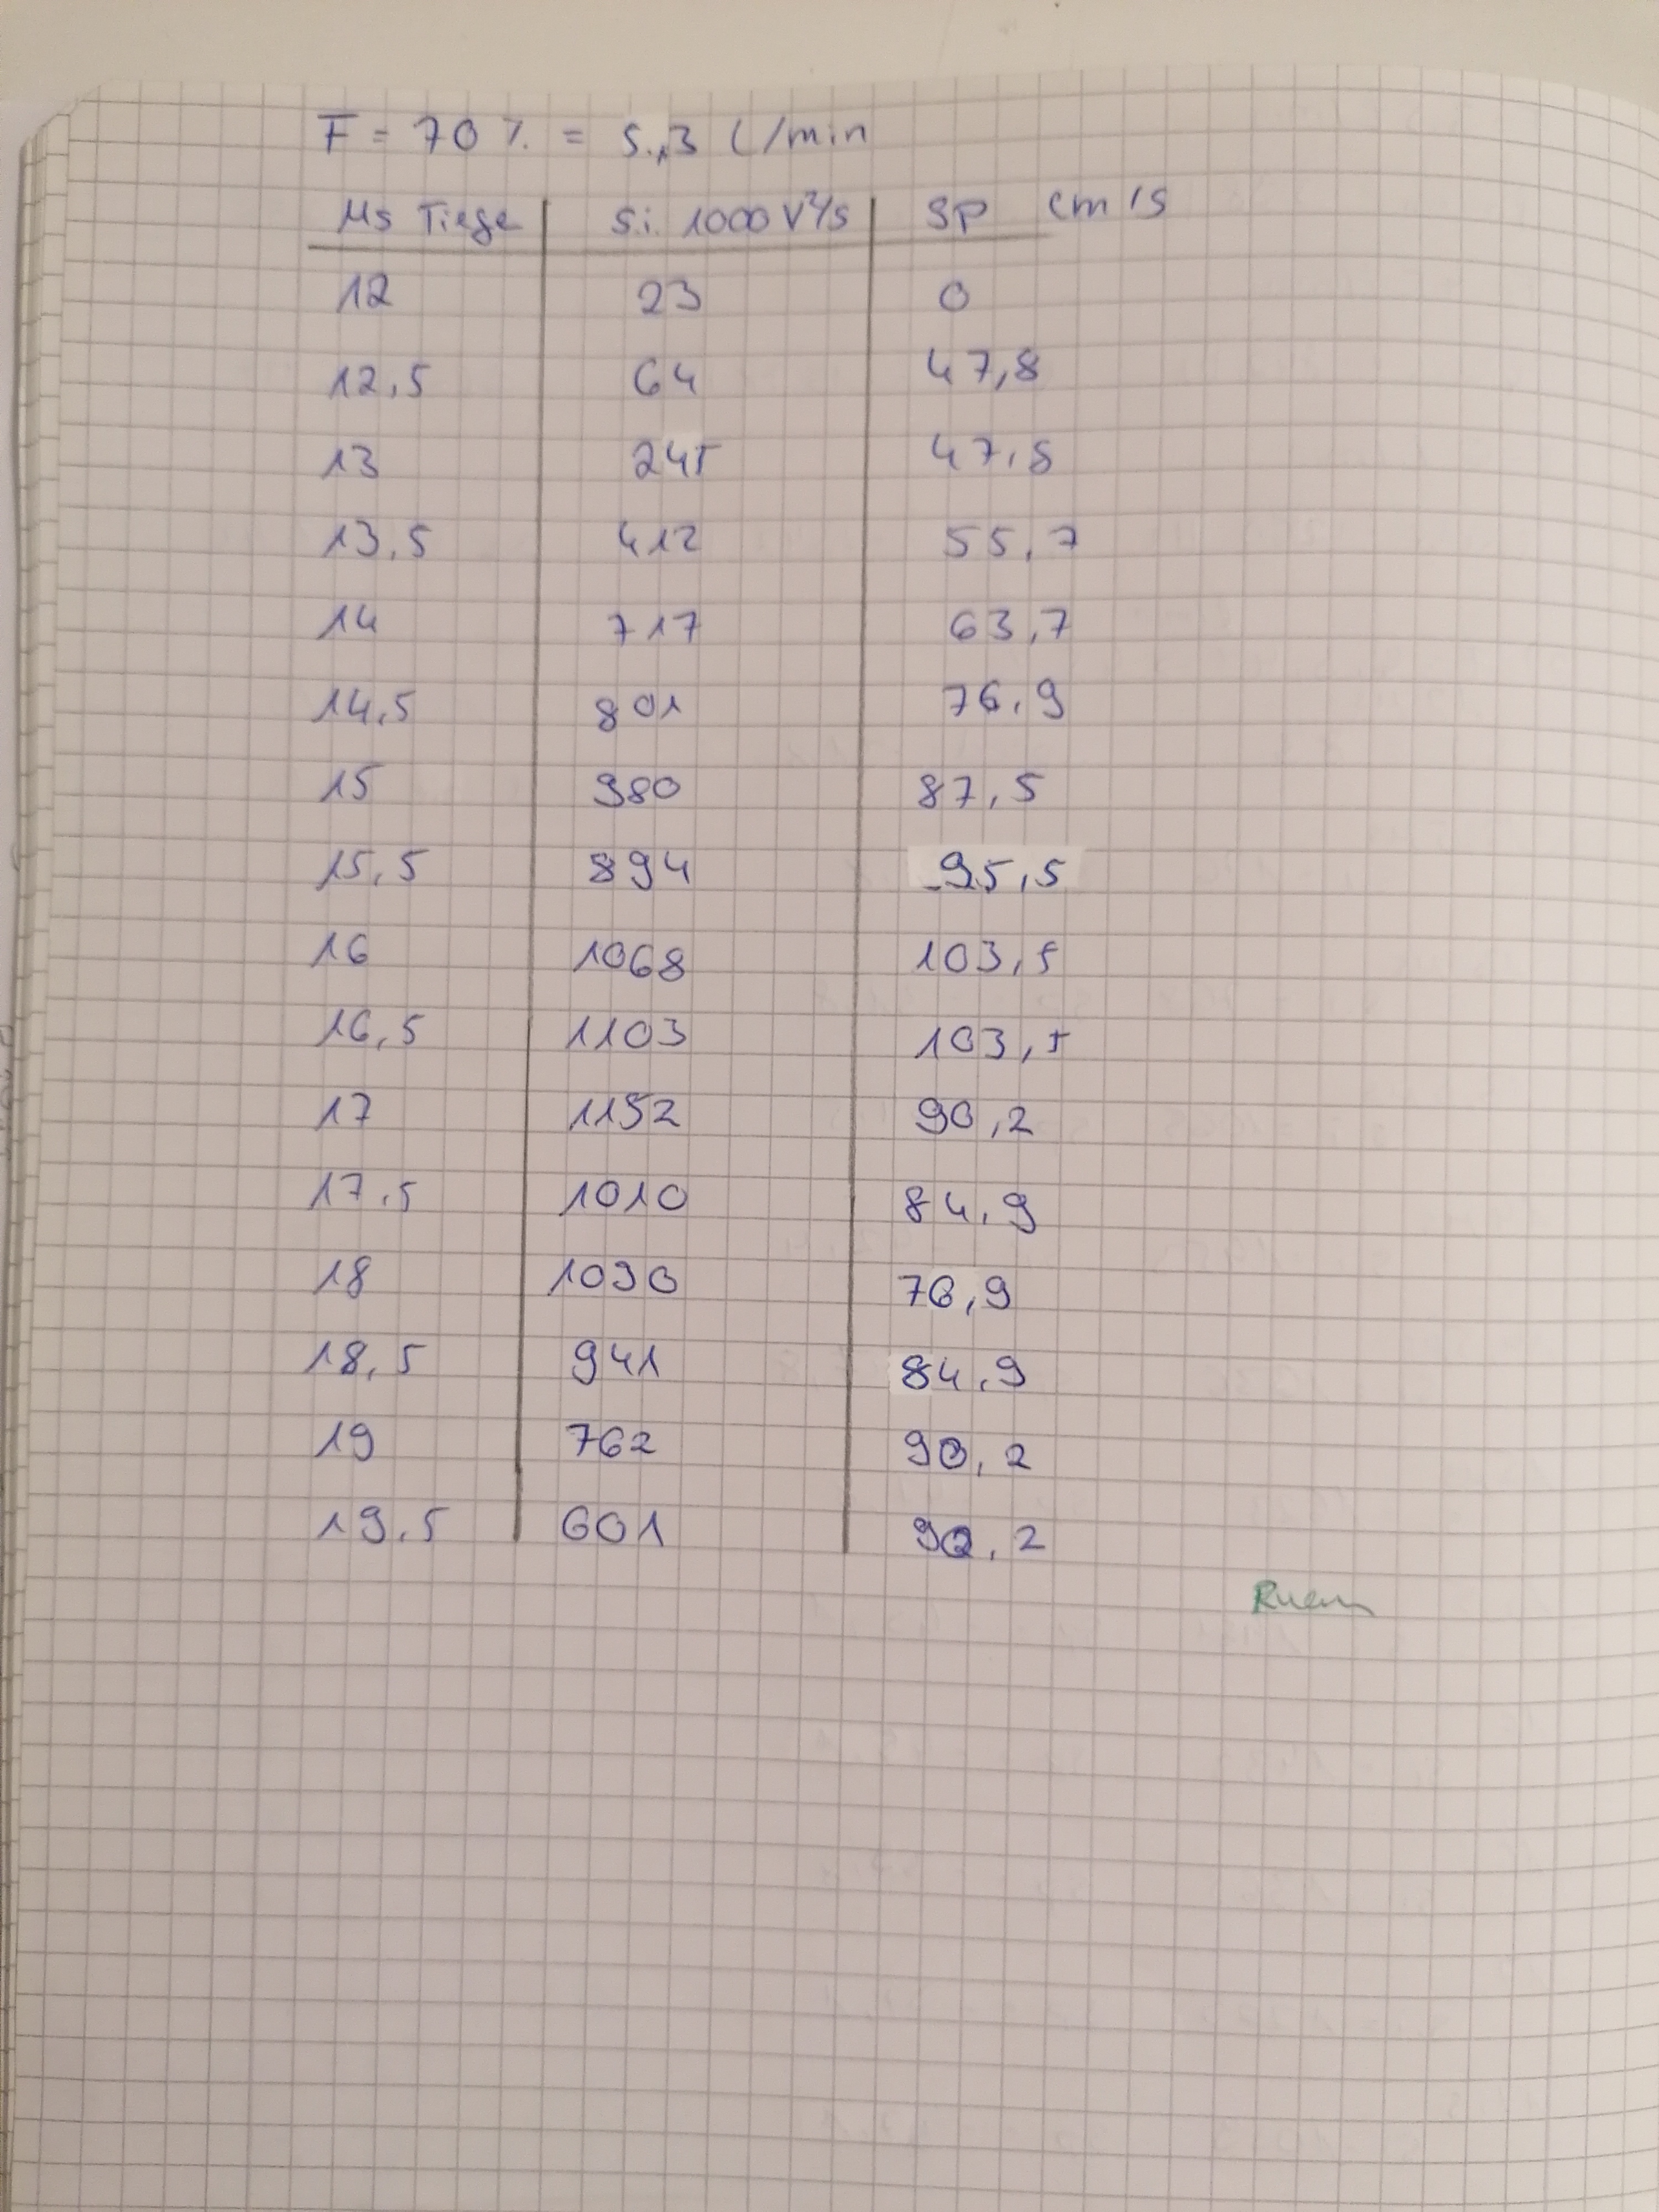 F = 70 % = 5,3 L/min
µs Tiefe | S.i. 1000 V²/s | SP cm/s
12 | 23 | 0
12,5 | 64 | 47,8
13 | 245 | 47,8
13,5 | 412 | 55,7
14 | 717 | 63,7
14,5 | 801 | 76,9
15 | 980 | 87,5
15,5 | 894 | 95,5
16 | 1068 | 103,5
16,5 | 1103 | 103,5
17 | 1152 | 90,2
17,5 | 1010 | 84,9
18 | 1090 | 76,9
18,5 | 941 | 84,9
19 | 762 | 90,2
19,5 | 601 | 90,2